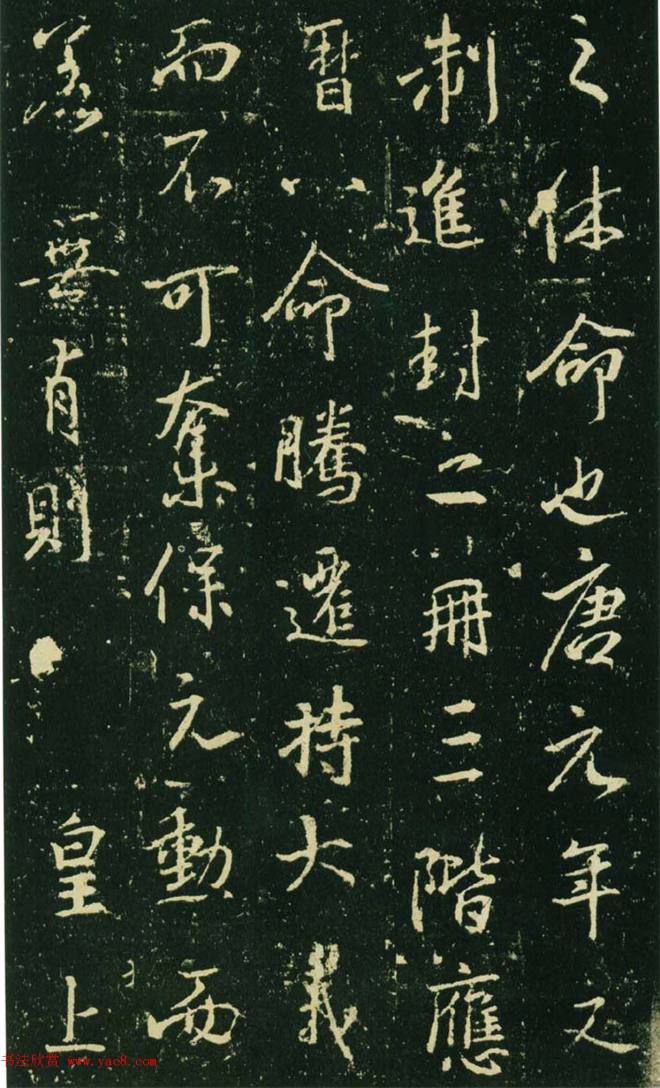 之休命也唐元年之
制進封二冊三階應
暦命騰遷持大義
而不可奪保元勳而
無有則 皇上
书法欣赏 www.yac8.com